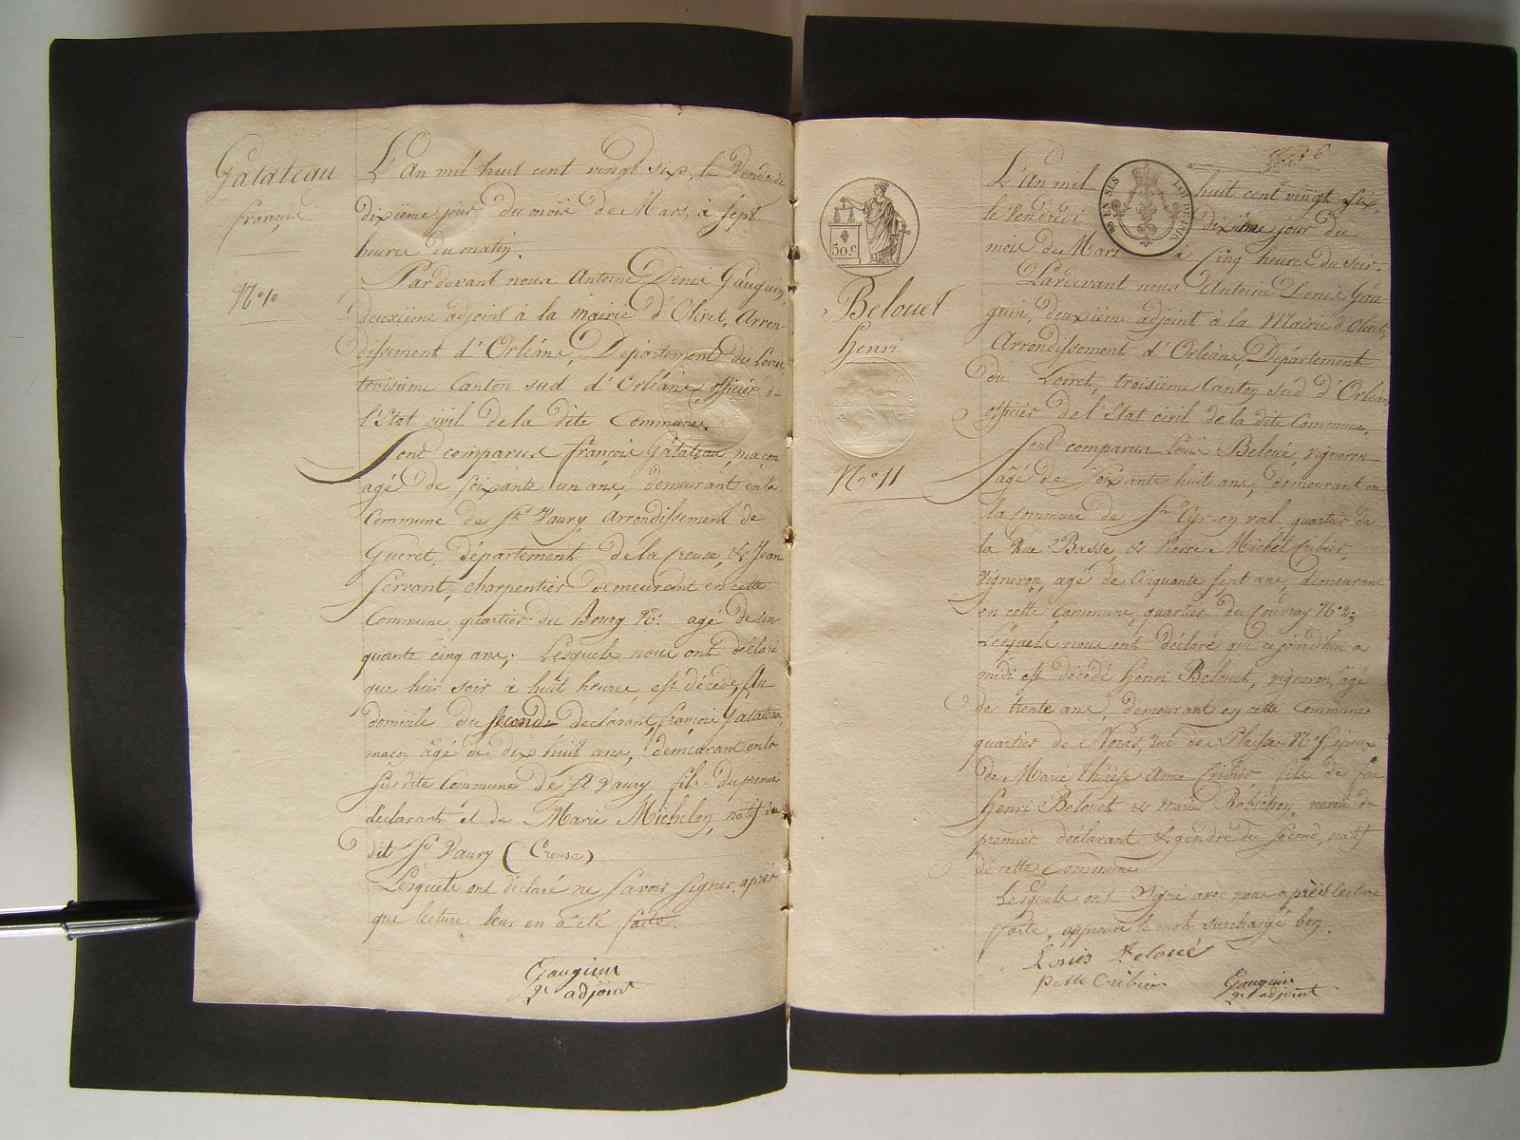 Gâtateau
françois
N.° 10
L'An mil huit cent vingt six, le Vendredi
dixième jour du mois de Mars, à sept
heures du matin.
Pardevant nous Antoine Denis Gauguin,
deuxième adjoint à la mairie d'Olivet, Arron-
dissement d'Orléans, Département du Loiret
troisième Canton sud d'Orléans officier de
l'Etat civil de la dite Commune.
Sont comparus françois Gâtateau, maçon
agé de soixante un ans, demeurant en la
Commune de St Vaury Arrondissement de
Gueret, département de la Creuse, & Jean
Servant, charpentier demeurant en cette
Commune, quartier du Bourg agé de cin
quante cinq ans; Lesquels nous ont déclaré
que hier soir à huit heures, est décédé, Au
domicile du second déclarant, françois Gatateau,
maçon âgé de dix huit ans, demeurant en la
susdite Commune de St Vaury fils du premier
déclarant et de Marie Michelon, natif du
dit St Vaury (Creuse)
Lesquels ont déclaré ne savoir signer, après
que lecture leur en a été faite.
Gauguin
2e adjoint
50 c
EN SUS
Belouet
henri
N.° 11
L'An mil huit cent vingt six,
le Vendredi dixième jour du
mois de Mars à Cinq heures du soir.
Pardevant nous Antoine Denis Gau-
guin, deuxième adjoint à la Mairie d'Olivet,
Arrondissement d'Orléans, Département
du Loiret, troisième Canton sud d'Orléans
officier de l'Etat civil de la dite Commune.
Sont comparus Louis Beloué, vigneron
âgé de soixante huit ans, demeurant en
la commune de St Cyr en val quartier de
la Rue Basse, & Pierre Michel Cribier,
Vigneron, agé de Cinquante sept ans, demeurant
en cette Commune, quartier du Couvray
Lesquels nous ont déclaré que ce jourd'hui à
midi est décédé henri Belouet, vigneron, âgé
de trente ans, demeurant en cette Commune
quartier de
de Marie thérèse Anne Cribier fils de feu
henri Belouet & Marie neveu du
premier déclarant & gendre du second, natif
de cette Commune
Lesquels ont signé avec nous après lecture
faite, approuvé le mot surchargé bon.
Louis Beloué
Cribier
Gauguin
2e adjoint